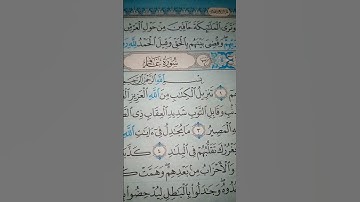 وَتَرَى الْمَلَٰئِكَةَ حَافِّينَ مِنْ حَوْلِ الْعَرْشِ
رَبِّهِمْ وَقُضِيَ بَيْنَهُم بِالْحَقِّ وَقِيلَ الْحَمْدُ لِلَّهِ
سُورَةُ غَافِرٍ
بِسْمِ اللَّهِ الرَّحْمَٰنِ الرَّحِيمِ
١ تَنزِيلُ الْكِتَٰبِ مِنَ اللَّهِ الْعَزِيزِ
وَقَابِلِ التَّوْبِ شَدِيدِ الْعِقَابِ ذِي
الْمَصِيرُ ٣ مَا يُجَٰدِلُ فِي ءَايَٰتِ اللَّهِ
يَغْرُرْكَ تَقَلُّبُهُمْ فِي الْبِلَٰدِ ٤ كَذَّبَتْ
وَالْأَحْزَابُ مِن بَعْدِهِمْ وَهَمَّتْ
وَجَٰدَلُوا بِالْبَٰطِلِ لِيُدْحِضُوا